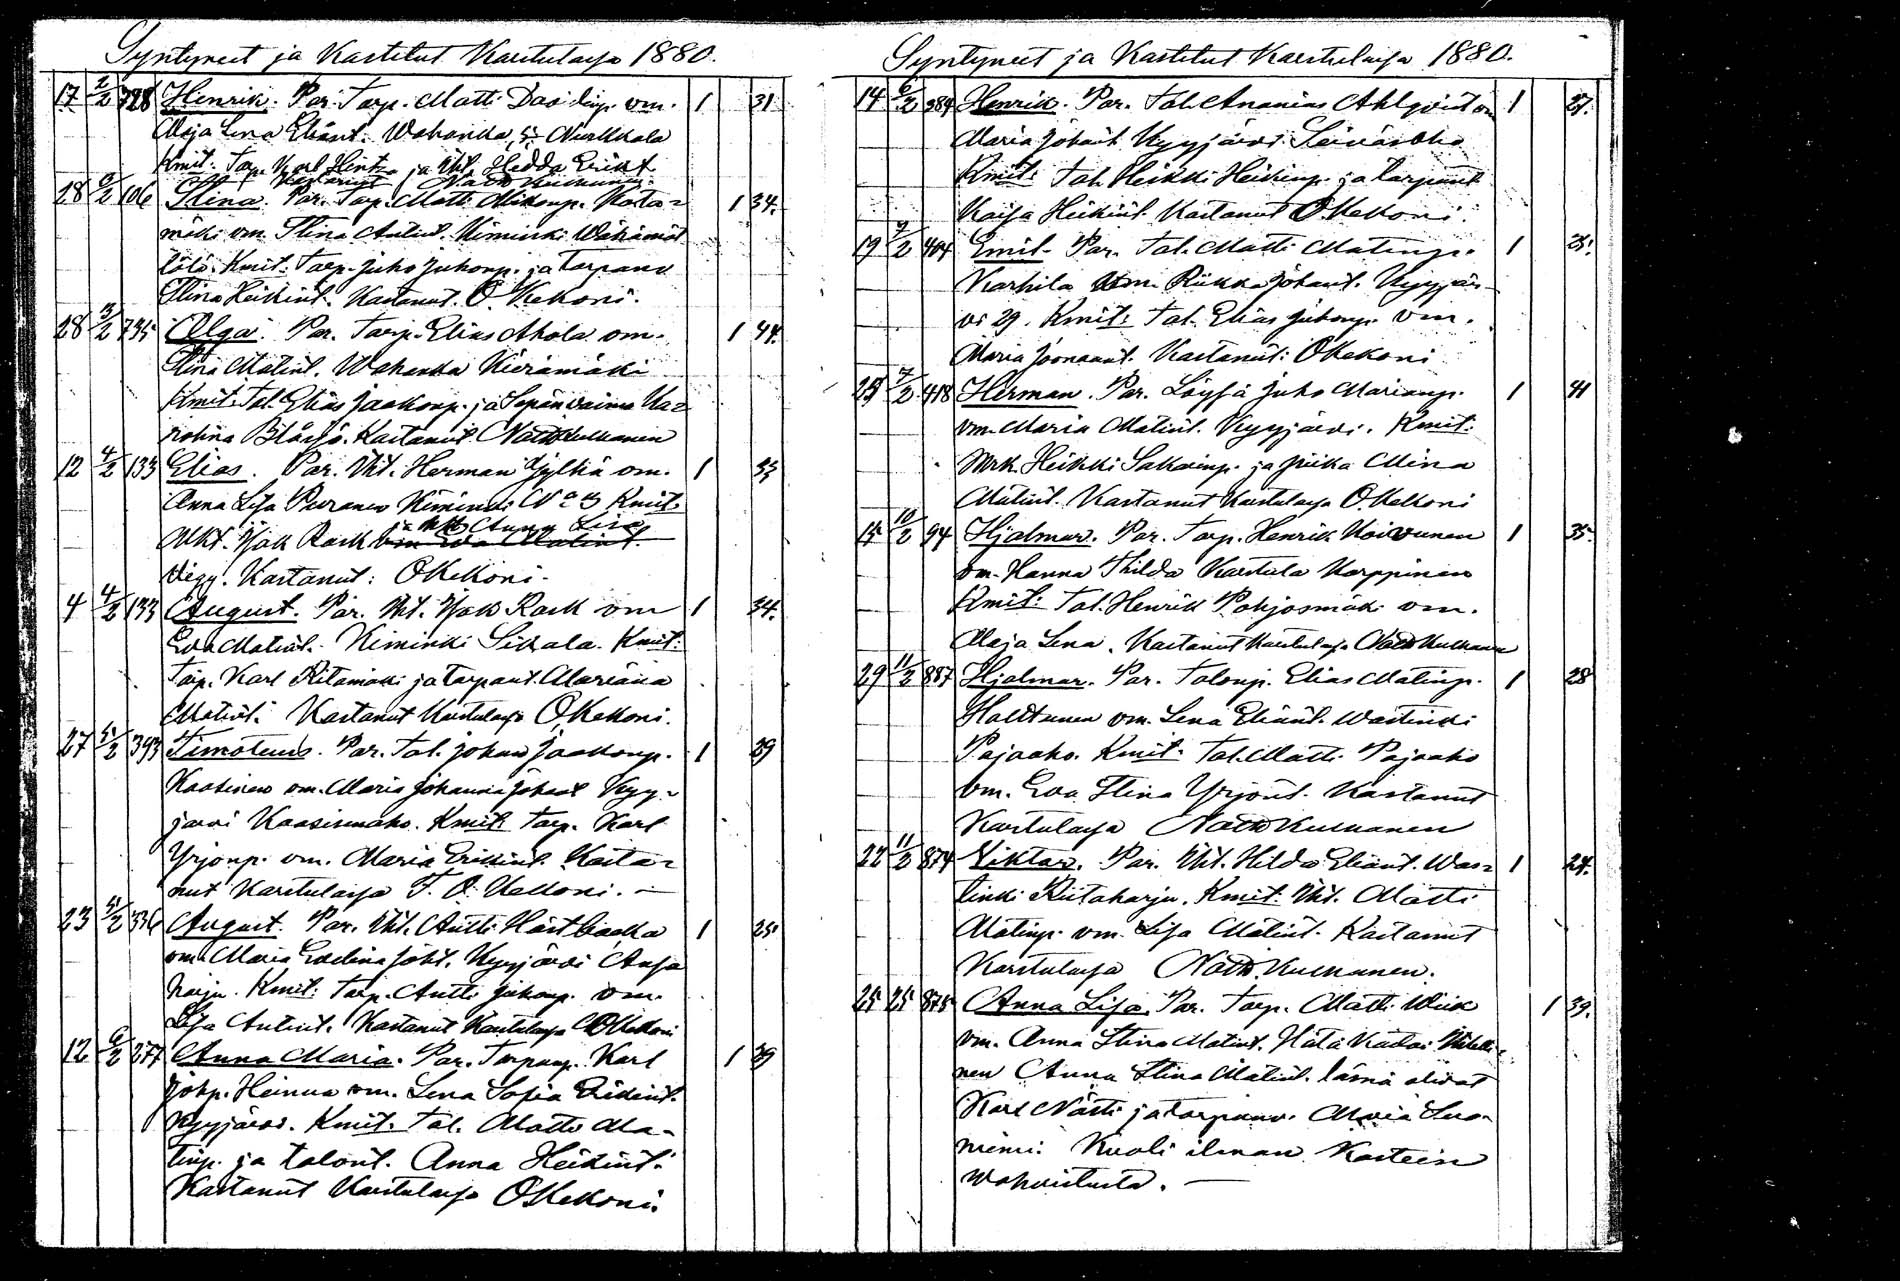 Syntyneet ja Kastetut Karstulassa 1880.
17 2/2 728 Henrik. Par. Torp. Matti Daa vm. 1 31
Maja Lena Eliant. Wahanka
Kmit. Torp. Karl ja Hedda Erikt
Kastanut Nath Kukkanen
28 2/2 106 Stina. Par. Torp. Matti Mikonp. Kota= 1 34.
mäki vm. Stina Antint. Kiminki
Kmit: Torp. Juho Juhonp. ja Torpanv
Stina Heikint. Kastanut. O. Kekoni.
28 3/2 735 Olga. Par. Torp. Elias Ahola vm. 1 44.
Stina Matint. Wahanka Kierämäki
Kmit: Tal. Elias Jaakonp. ja Sepän vaimo Ka=
rolina Kastanut Nath Kukkanen
12 4/2 133 Elias. Par. Itt. Herman Jylhä vm. 1 33
Anna Lisa Puranen Kiminki No 3 Kmit:
Anna Lisa
Jak Rask vm Eva Matint.
Kastanut: O Kekoni.
4 4/2 133 August. Par. Itt. Jak Rask vm 1 34.
Eva Matint. Kiminki Sikala. Kmit:
Torp. Karl Ritamäki ja torpant. Mariana
Matint. Kastanut Karstulassa O Kekoni.
27 5/2 393 Timoteus. Par. Tal. Johan Jaakonp. 1 29
Kaasinen vm. Maria Johanna Johant Kyy=
järvi Kaasisenaho. Kmit: Torp. Karl
Yrjönp. vm. Maria Erikint. Kasta=
nut Karstulassa F. O. Kekoni. —
23 5/2 336 August. Par. Itt. Antti Hästbacka 1 25
vm. Maria Evelina Joht. Kyyjärvi
harju. Kmit: Torp. Antti Juhonp. vm.
Lisa Antint. Kastanut Karstulassa O Kekoni
12 6/2 277 Anna Maria. Par. Torpanp. Karl 1 39
Johp. Heinua vm. Lena Sofia Erikint.
Kyyjärvi. Kmit. Tal. Matti Ma=
tinp. ja talont. Anna Heikint.
Kastanut Karstulassa O Kekoni.
Syntyneet ja Kastetut Karstulassa 1880.
14 6/2 384 Henrik. Par. Tal. Ananias Ahlqvist vm 1 27.
Maria Johant Kyyjärvi Seiväsaho
Kmit: Tal. Heikki Heikinp. ja torpant
Kaisa Heikint. Kastanut O. Kekoni.
19 7/2 404 Emil. Par. Tal. Matti Matinp. 1 25.
Karhila vm. Riikka Johant. Kyyjär=
vi 29. Kmit: Tal. Elias Juhonp. vm.
Maria Joonaant. Kastanut: O Kekoni
25 7/2 418 Herman. Par. Löysä Juho Marianp. 1 41
vm. Maria Matint. Kyyjärvi. Kmit:
Mrk. Heikki Sakarinp. ja piika Mina
Matint. Kastanut Karstulassa O. Kekoni
15 10/2 94 Hjalmar. Par. Torp. Henrik Koivunen 1 35.
vm. Hanna Thilda Karstula Korppinen
Kmit: Tal. Henrik Pohjosmäki vm.
Maja Lena. Kastanut Karstulassa Nath Kukkanen
29 11/2 887 Hjalmar. Par. Talonp. Elias Matinp. 1 28
Holttunen vm. Lena Eliant. Wastinki
Pajaaho. Kmit: Tal. Matti Pajaaho
vm. Eva Stina Yrjönt. Kastanut
Karstulassa Nath Kukkanen
22 11/2 874 Viktor. Par. Itt. Hilda Eliant. Was= 1 24.
tinki Riitaharju. Kmit: Itt. Matti
Matinp. vm. Lisa Matint. Kastanut
Karstulassa Nath. Kukkanen.
25 25 875 Anna Lisa. Par. Torp. Matti Wiik 1 39.
vm. Anna Stina Matint. Hätä Kastoi
nen Anna Stina Matint. läsnä olivat
Karl Närhi ja torpanv. Maria Suo=
niemi. Kuoli ilman Kasteen
wahvistusta. —